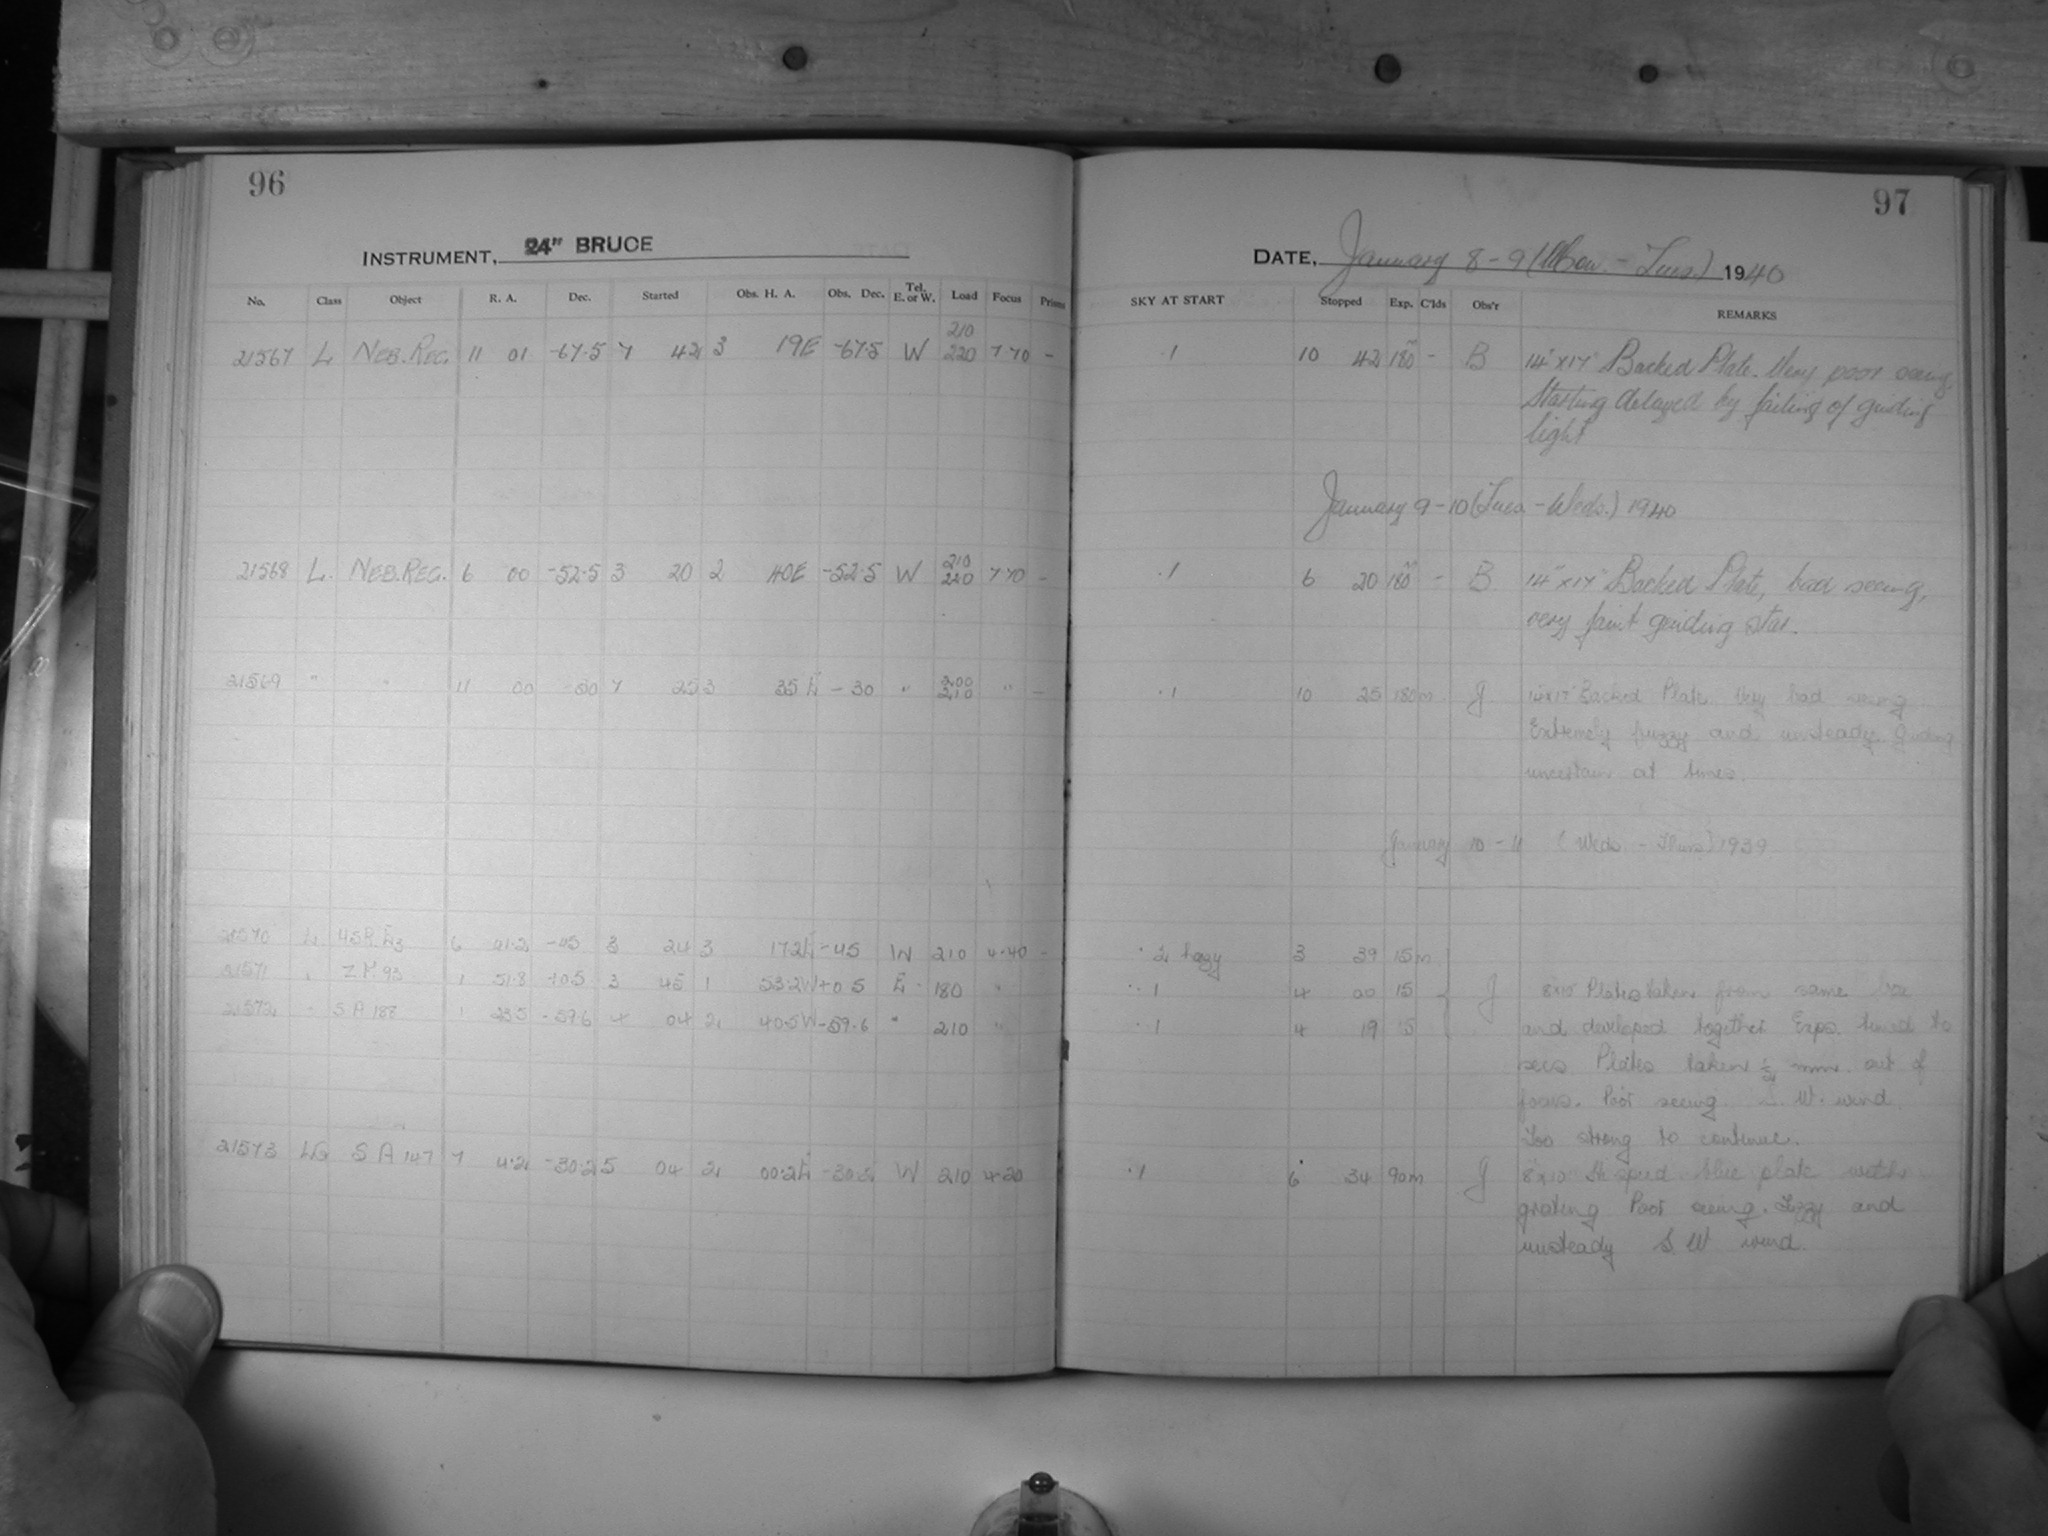 96
INSTRUMENT, 24" BRUCE
No. Class Object R. A. Dec. Started Obs. H. A. Obs. Dec. Tel. E. or W. Load Focus Prism
21567 L NEB. REG. 11 01 -67.5 7 42 3 19E -67.5 W 210 220 7.70 -
21568 L. NEB. REG. 6 00 -52.5 3 20 2 40E -52.5 W 210 220 7.70 -
21569 " " 11 00 -30 7 25 3 35 E -30 " 200 210 " -
21570 L 6 41.2 -45 3 24 3 17.2E -45 W 210 4.40 -
21571 " 1 51.8 +0.5 3 45 1 53.2W +0.5 E 180 "
21572 " S A 188 1 -59.6 4 04 2 40.5W -59.6 " 210 "
21573 LG S A 147 7 4.2 -30.2 5 04 2 00.2E -30.2 W 210 4.20
97
DATE, January 8-9 (Mon. - Tues.) 1940
SKY AT START Stopped Exp. C'lds Obs'r REMARKS
.1 10 42 180m - B 14"x17" Backed Plate. Very poor seeing.
Starting delayed by failing of guiding
light
January 9-10 (Tues. - Weds.) 1940
.1 6 20 180m - B 14"x17" Backed Plate, bad seeing,
very faint guiding star.
.1 10 25 180m J 14x17" Backed Plate. Very bad seeing
Extremely fuzzy and unsteady. Guiding
uncertain at times.
January 10-11 (Weds. - Thurs.) 1939
.2 hazy 3 39 15m
.1 4 00 15 J 8x10 Plates taken from same box
.1 4 19 15 and developed together. Exps. timed to
secs Plates taken ½ mm. out of
focus. Poor seeing. W. wind
Too strong to continue.
.1 6 34 90m J 8x10 speed blue plate with
grating Poor seeing. Fuzzy and
unsteady S. W. wind.